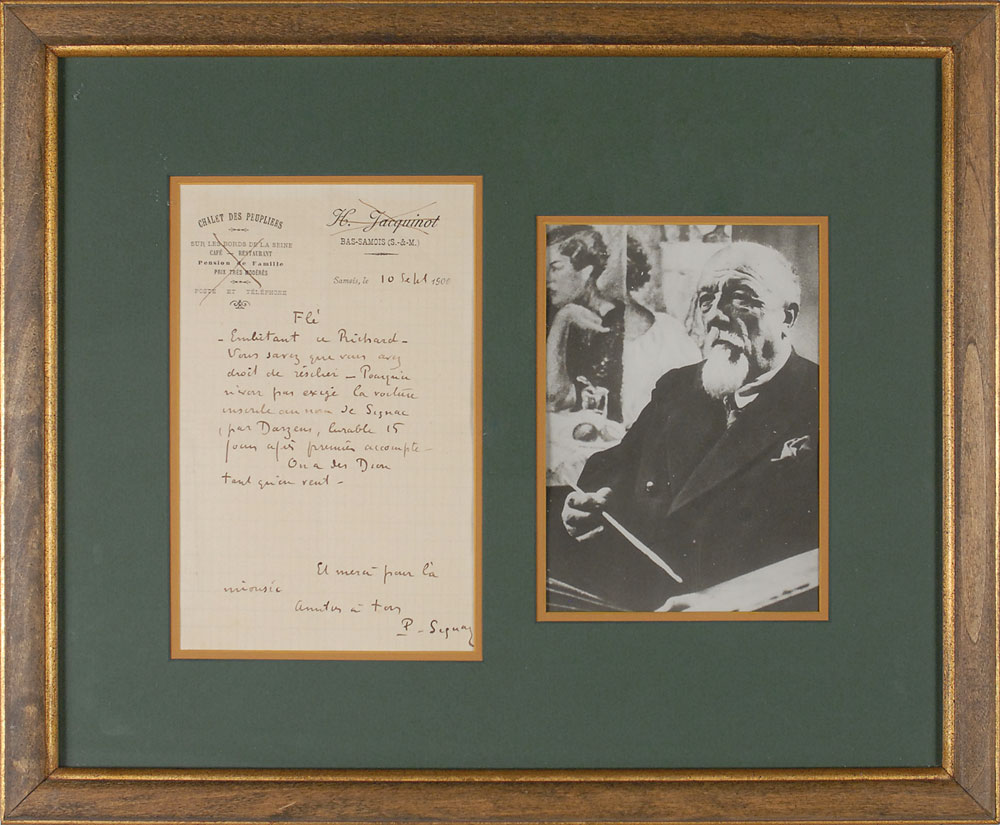 CHALET DES PEUPLIERS
SUR LES BORDS DE LA SEINE
CAFÉ - RESTAURANT
Pension de Famille
PRIX TRÈS MODÉRÉS
POSTE ET TÉLÉPHONE
H. Jacquinot
BAS-SAMOIS (S.-&-M.)
Samois, le 10 Sept 1900
Flé
- Embêtant ce Richard -
Vous savez que vous avez
droit de résilier - Pourquoi
n'avoir pas exigé la voiture
inscrite au nom de Signac
, par Darzens, livrable 15
jours après premier accompte -
On a des Dion
tant qu'on veut -
Et merci pour la
Amitiés à tous
P - Signac